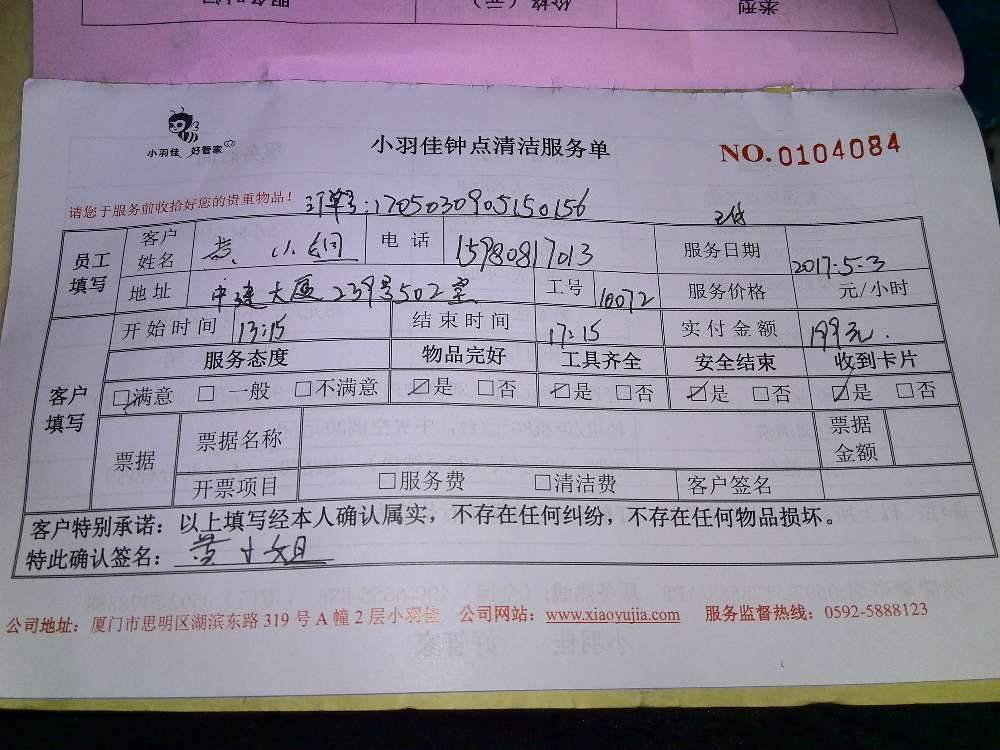 服务时间 价格（元） 类型
小羽佳 好管家
小羽佳钟点清洁服务单
NO.0104084
请您于服务前收拾好您的贵重物品！ 订单号:1705030905150156
员工填写 客户姓名 黄小姐 电话 15980817013 服务日期 2017.5.3
地址 中建大厦239号502室 工号 10072 服务价格 元/小时
客户填写 开始时间 13:15 结束时间 17:15 实付金额 199元.
服务态度 物品完好 工具齐全 安全结束 收到卡片
☑满意 □ 一般 □不满意 ☑是 □否 ☑是 □否 ☑是 □否 ☑是 □否
票据 票据名称 票据金额
开票项目 □服务费 □清洁费 客户签名
客户特别承诺：以上填写经本人确认属实，不存在任何纠纷，不存在任何物品损坏。
特此确认签名： 黄小姐
公司地址：厦门市思明区湖滨东路 319 号 A 幢 2 层小羽佳 公司网站：www.xiaoyujia.com 服务监督热线：0592-5888123